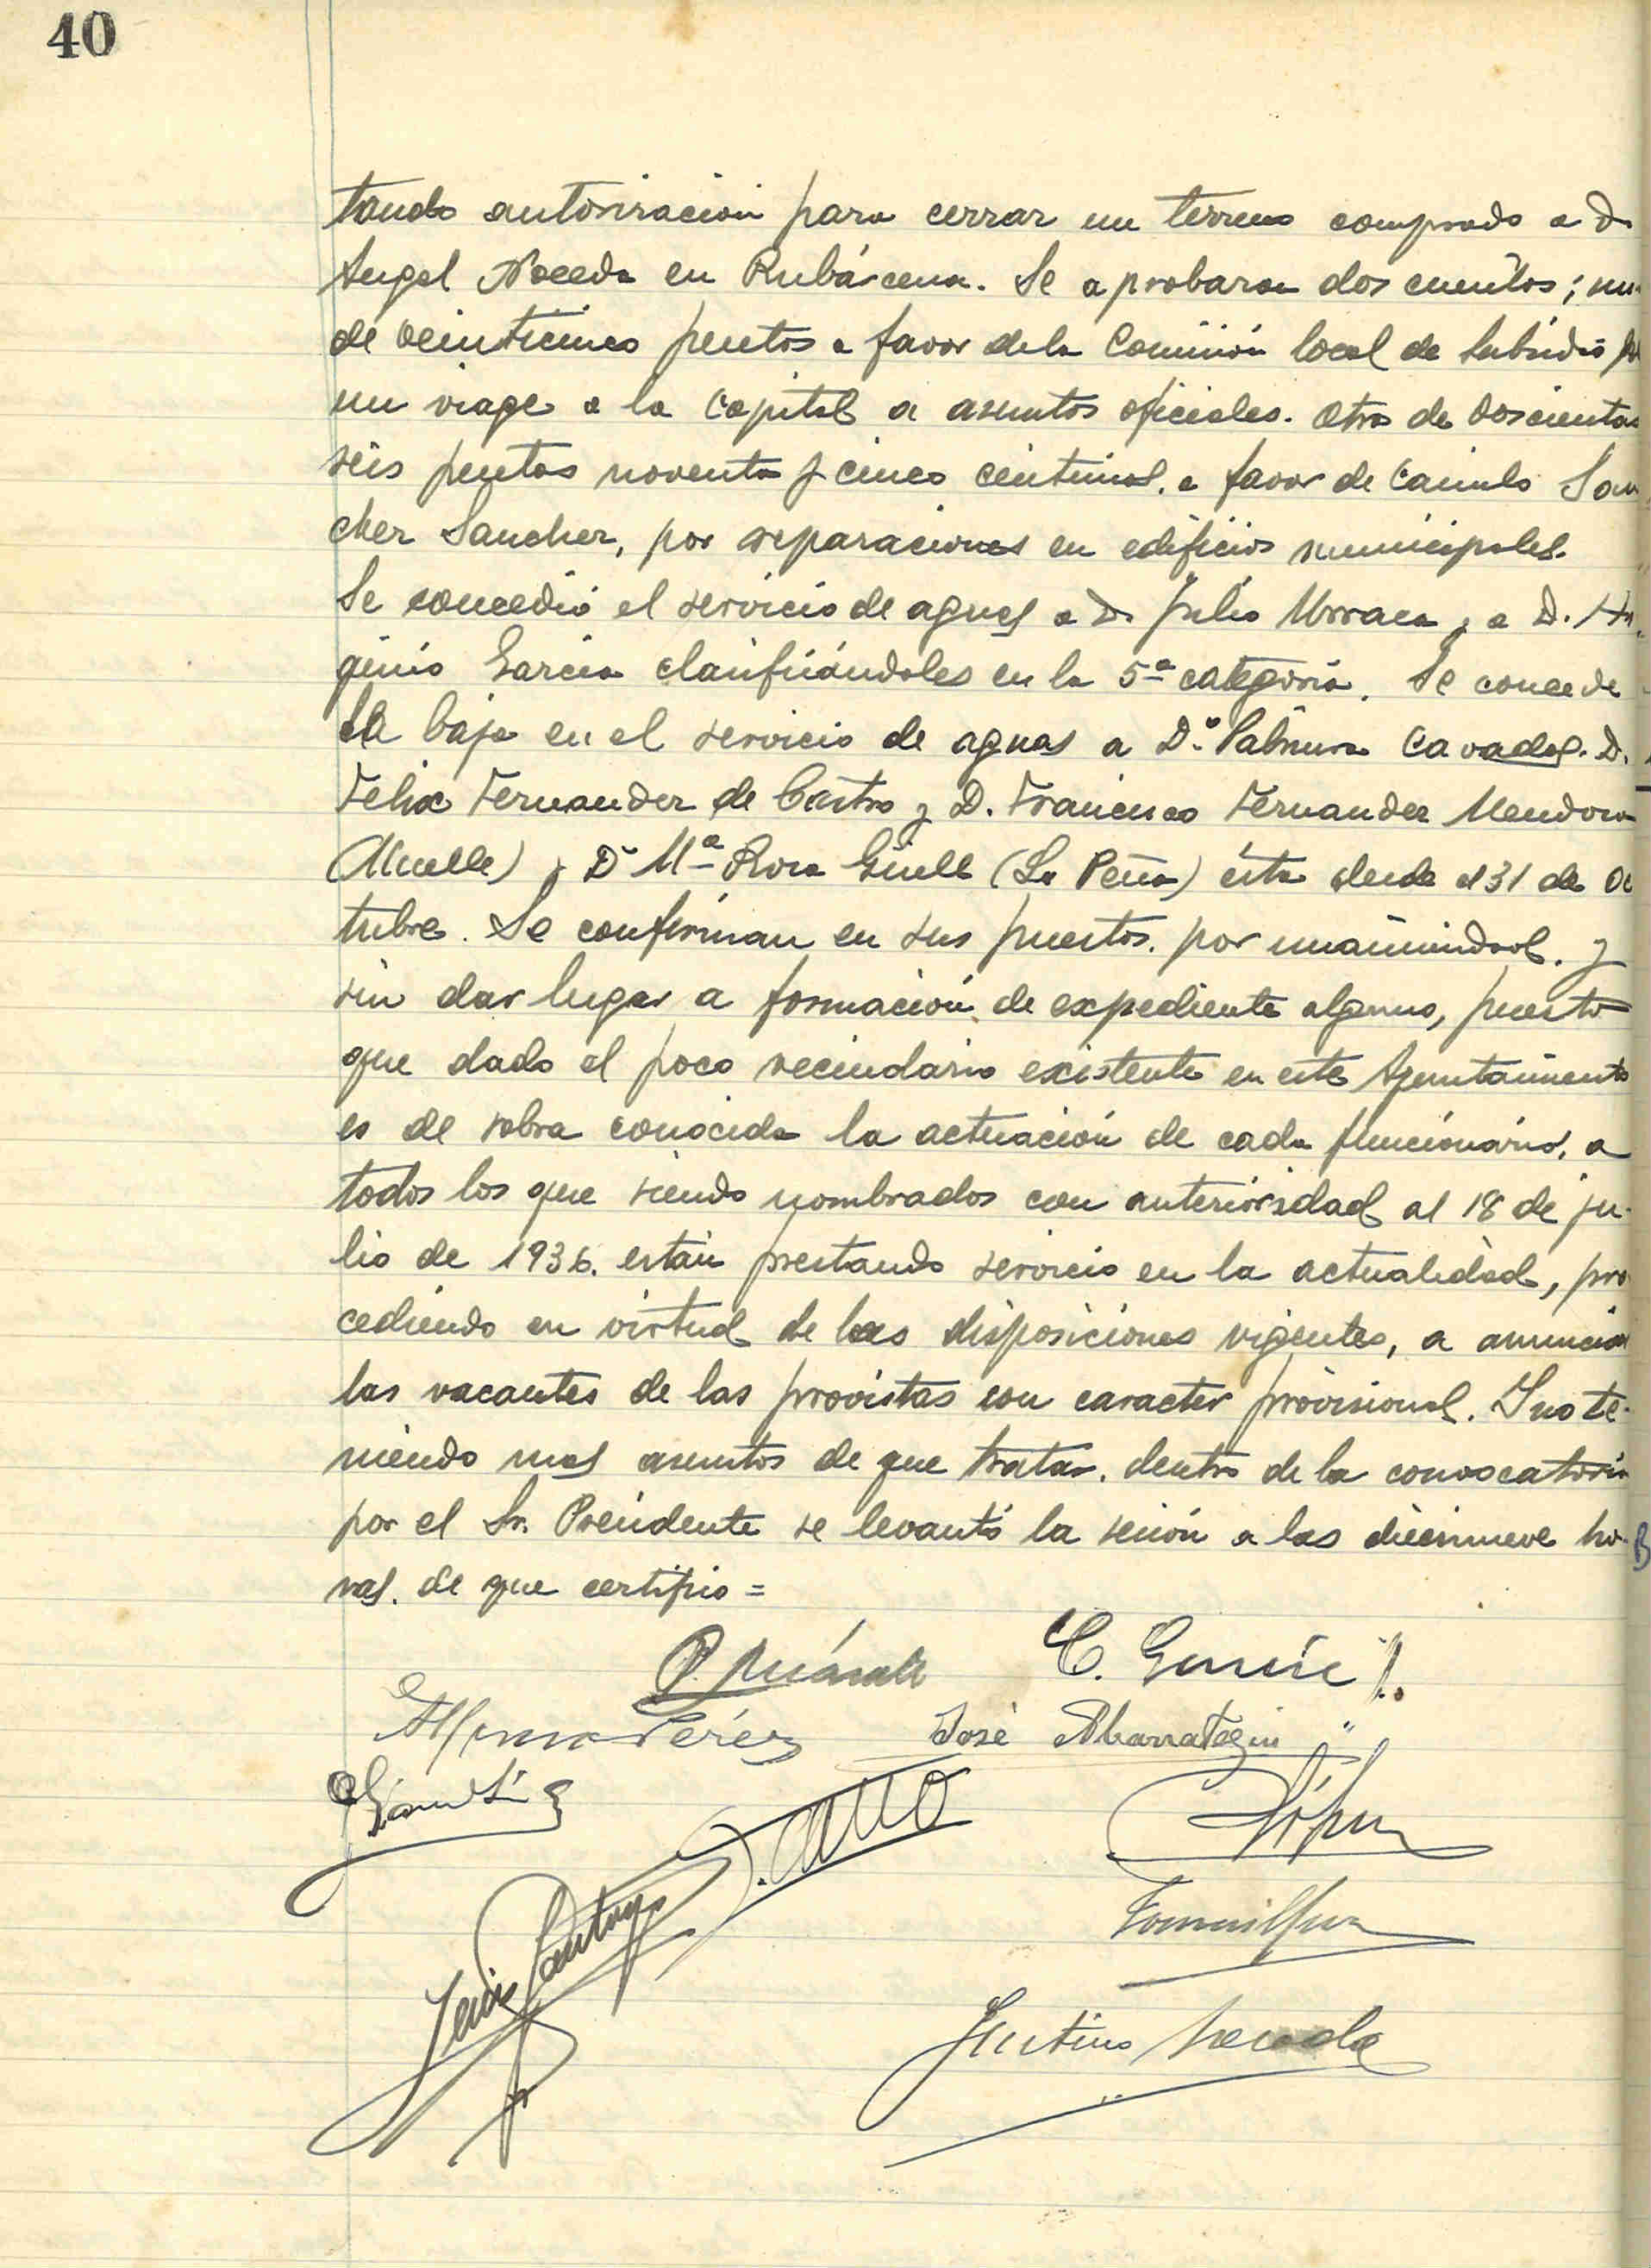 40
tando autorización para cerrar un terreno comprado a D.
Angel Noceda en Rubárcena. Se aprobaron dos cuentas; una
de veinticinco pesetas a favor de la Comisión local de Subsidio por
un viage a la Capital a asuntos oficiales. Otra de doscientas
seis pesetas noventa y cinco centimos, a favor de Camilo San
chez Sanchez, por reparaciones en edificios municipales.
Se concedió el servicio de aguas a D. Julio Urraca y a D. Hi
ginio Garcia clasificándoles en la 5ª categoria. Se concede
la baja en el servicio de aguas a Dª Palmira Cavadas. D.
Felix Fernandez de Castro y D. Francisco Fernandez Mendoza
(Muelle) y Dª Mª Rosa Güell (La Peña) ésta desde el 31 de Oc
tubre. Se confirman en sus puestos, por unanimidad, y
sin dar lugar a formación de expediente alguno, puesto
que dado el poco vecindario existente en este Ayuntamiento
es de sobra conocida la actuación de cada funcionario, a
todos los que siendo nombrados con anterioridad al 18 de ju-
lio de 1936. están prestando servicio en la actualidad, pro
cediendo en virtud de las disposiciones vigentes, a anunciar
las vacantes de las provistas con caracter provisional. Y no te-
niendo mas asuntos de que tratar, dentro de la convocatoria
por el Sr. Presidente se levantó la sesión a las diecinueve ho-
ras. de que certifico =
C. Garcia
Alfonso Perez José Abarrategui
J. Cano López
Luis Santoyo
Justino Noceda